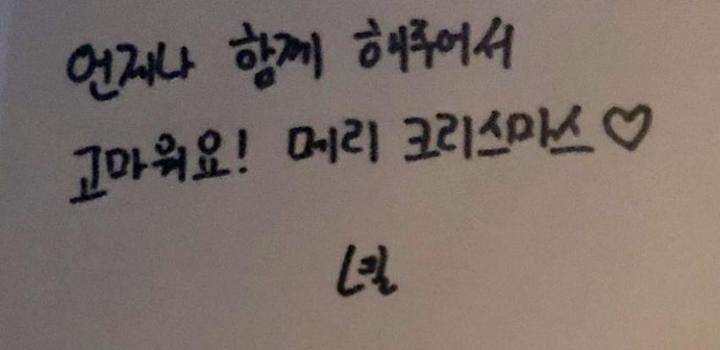 언제나 함께 해주어서
고마워요! 메리 크리스마스♡